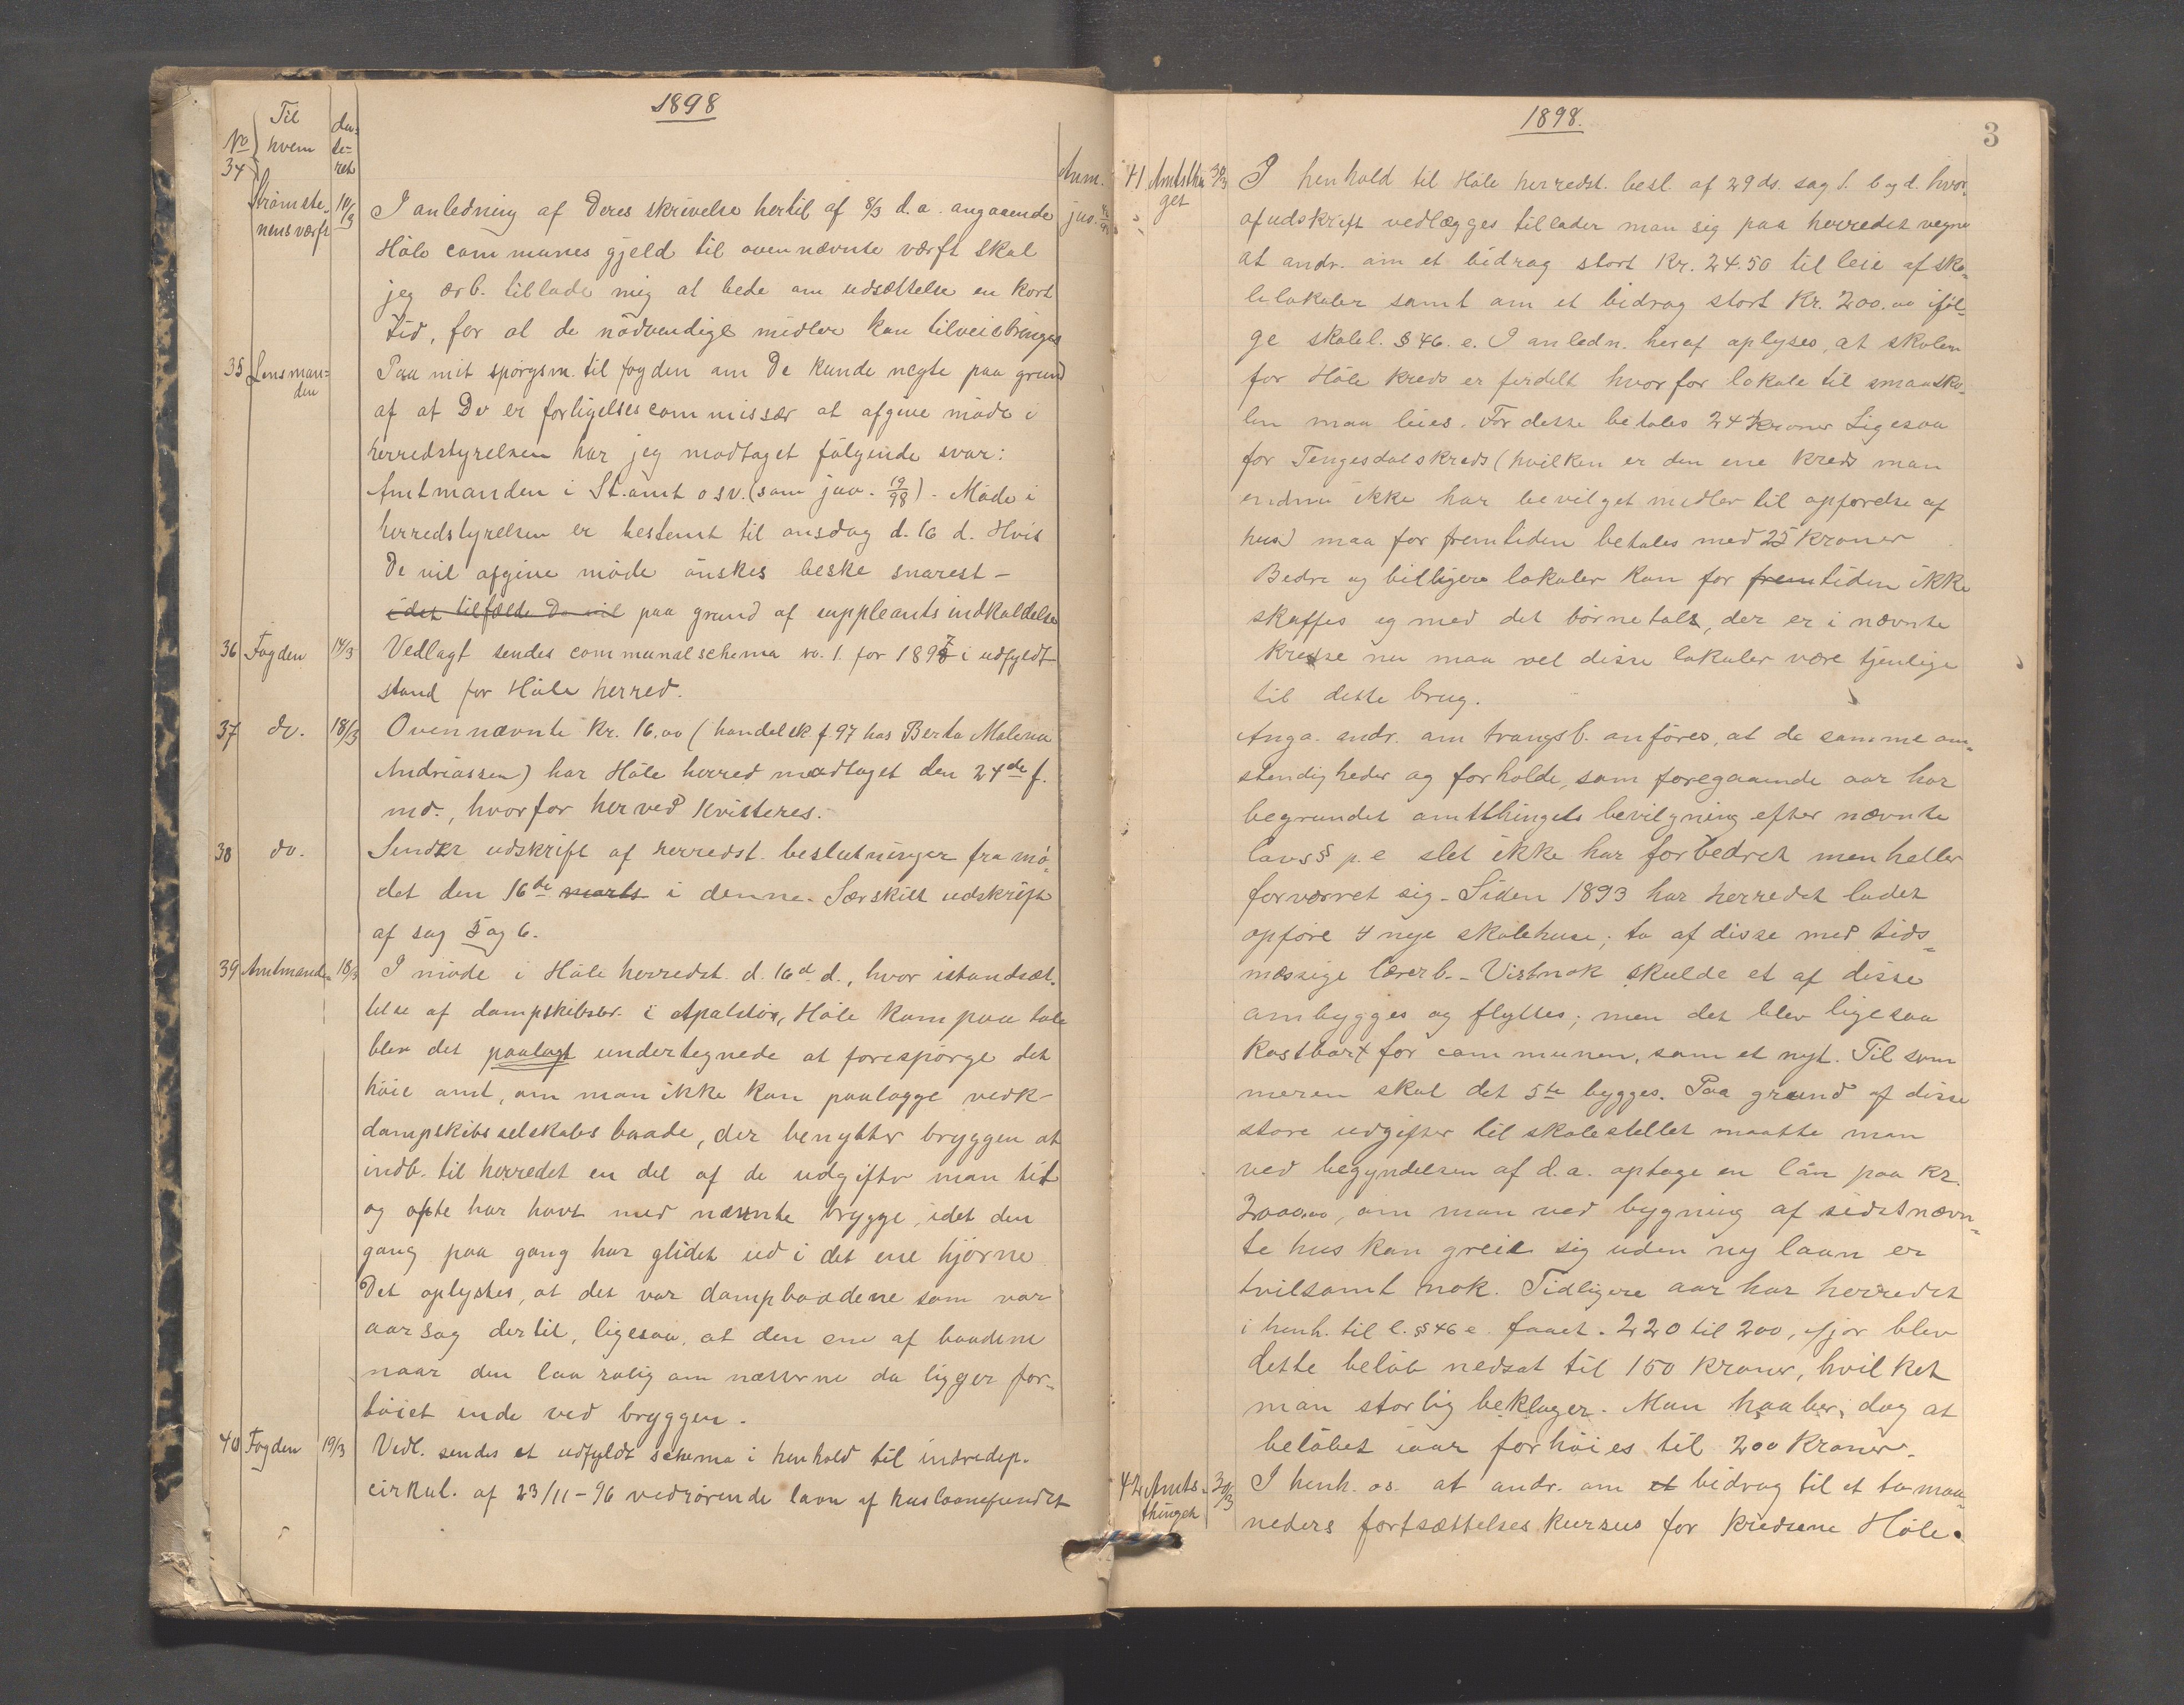 1898
No 34 Til hvem da- te- ret Anm.
Strømste- nens værft 10/3 I anledning af Deres skrivelse hertil af 8/3 d.a. angaaende jno.
Høle communes gjeld til ovennævnte værft skal
jeg ærb. tillade mig at bede om udsættelse en kort
tid, for at de nødvendige midler kan tilveiebringes
35 Lensman- den Paa mit spørgsm. til fogden om De kunde negte paa grund
af at De er forligelsescommissær at afgive møde i
herredstyrelsen har jeg modtaget følgende svar:
Amtmanden i St. amt osv. (som jno. 19/98). Møde i
herredstyrelsen er bestemt til onsdag d. 16 d. Hvis
De vil afgive møde ønskes beske snarest –
idet tilfælde De vil paa grund af suppleants indkaldelse
36 Fogden 14/3 Vedlagt sendes communalschema no. 1. for 1897 i udfyldt
stand for Høle herred.
37 do. 18/3 Ovennævnte Kr. 16.00 (handelsk f. 97 hos Berta Malena
Andreassen) har Høle herred modtaget den 24de f.
md., hvorfor herved kvitteres.
38 do. Sender udskrift af herredst. beslutninger fra mø-
det den 16de marts i denne. Særskilt udskrift
af sag 5 og 6.
39 Amtmanden 18/3 I møde i Høle herredst. d. 16d d., hvor istandsæt-
telse af dampskibsbr. i Apalstø, Høle kom paa tale
blev det paalagt undertegnede at forespørge det
høie amt, om man ikke kan paalægge vedk-
dampskibsselskabs baade, der benytter bryggen at
indb. til herredet en del af de udgifter man tit
og ofte har havt med nævnte brygge, idet den
gang paa gang har glidet ud i det ene hjørne
Det oplystes, at det var dampbaadene som var
aarsag dertil, ligesaa, at den ene af baadene
naar den laa rolig om nætterne da ligger for-
tøiet inde ved bryggen.
40 Fogden 19/3 Vedl. sendes et udfyldt schema i henhold til indredep.
cirkul. af 23/11-96 vedrørende laan af huslaanefundet
1898.
3
41 Amtsthin- get 30/3 I henhold til Høle herredst. besl. af 29 ds. sag 1. b og d. hvor-
af udskrift vedlægges tillader man sig paa herredet vegne
at andr. om et bidrag stort Kr. 24.50 til leie af sko-
lelokaler samt om et bidrag stort Kr. 200.00 iføl-
ge skolel. § 46. e. I anledn. heraf oplyses, at skolen
for Høle kreds er firdelt hvorfor lokale til smaasko-
len maa leies. For dette betales 24 kroner Ligesaa
for Tengesdalskreds (hvilken er den ene kreds man
endnu ikke har bevilget midler til opførelse af
hus) maa for fremtiden betales med 25 kroner
Bedre og billigere lokaler kan for fremtiden ikke
skaffes og med det børnetal, der er i nævnte
kredse nu maa vel disse lokaler være tjenlige
til dette brug.
Anga. andr. om trangsb. anføres, at de samme om-
stendigheder og forholde, som foregaaende aar har
begrundet amtthingets bevilgning efter nævnte
lovs § p. e slet ikke har forbedret men heller
forværret sig. Siden 1893 har herredet ladet
opføre 4 nye skolehuse; to af disse med tids-
mæssige lærerb. Vistnok skulde et af disse
ombygges og flyttes; men det blev ligesaa
kostbart for communen, som et nyt. Til som
meren skal det 5te bygges. Paa grund af disse
store udgifter til skolestellet maatte man
ved begyndelsen af d.a. optage en lån paa kr.
2000.00, om man ved bygning af sidstnævn-
te hus kan greie sig uden ny laan er
tvilsamt nok. Tidligere aar har herredet
i henh. til l. § 46 e. faaet. 220 til 200, ifjor blev
dette beløb nedsat til 150 kroner, hvilket
man storlig beklager. Man haaber, dog at
beløbet iaar forhøies til 200 kroner.
42 Amts- thinget 30/3 I henh. os. at andr. om et bidrag til et to maa-
neders fortsættelses kursus for kredsene Høle.